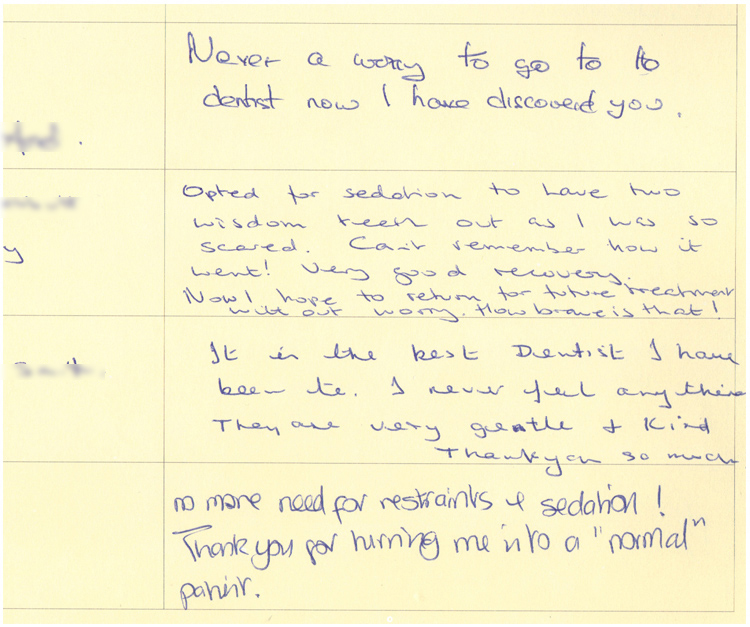 Never a worry to go to to
dentist now I have discoverd you.
Opted for sedation to have two
wisdom teeth out as I was so
scared. Can't remember how it
went! Very good recovery.
Now I hope to return for future treatment
without worry. How brave is that!
It is the best Dentist I have
been to. I never feel any thin
They are very gentle & Kind
Thankyou so much
no more need for restraints & sedation!
Thank you for turning me into a "normal"
patient.